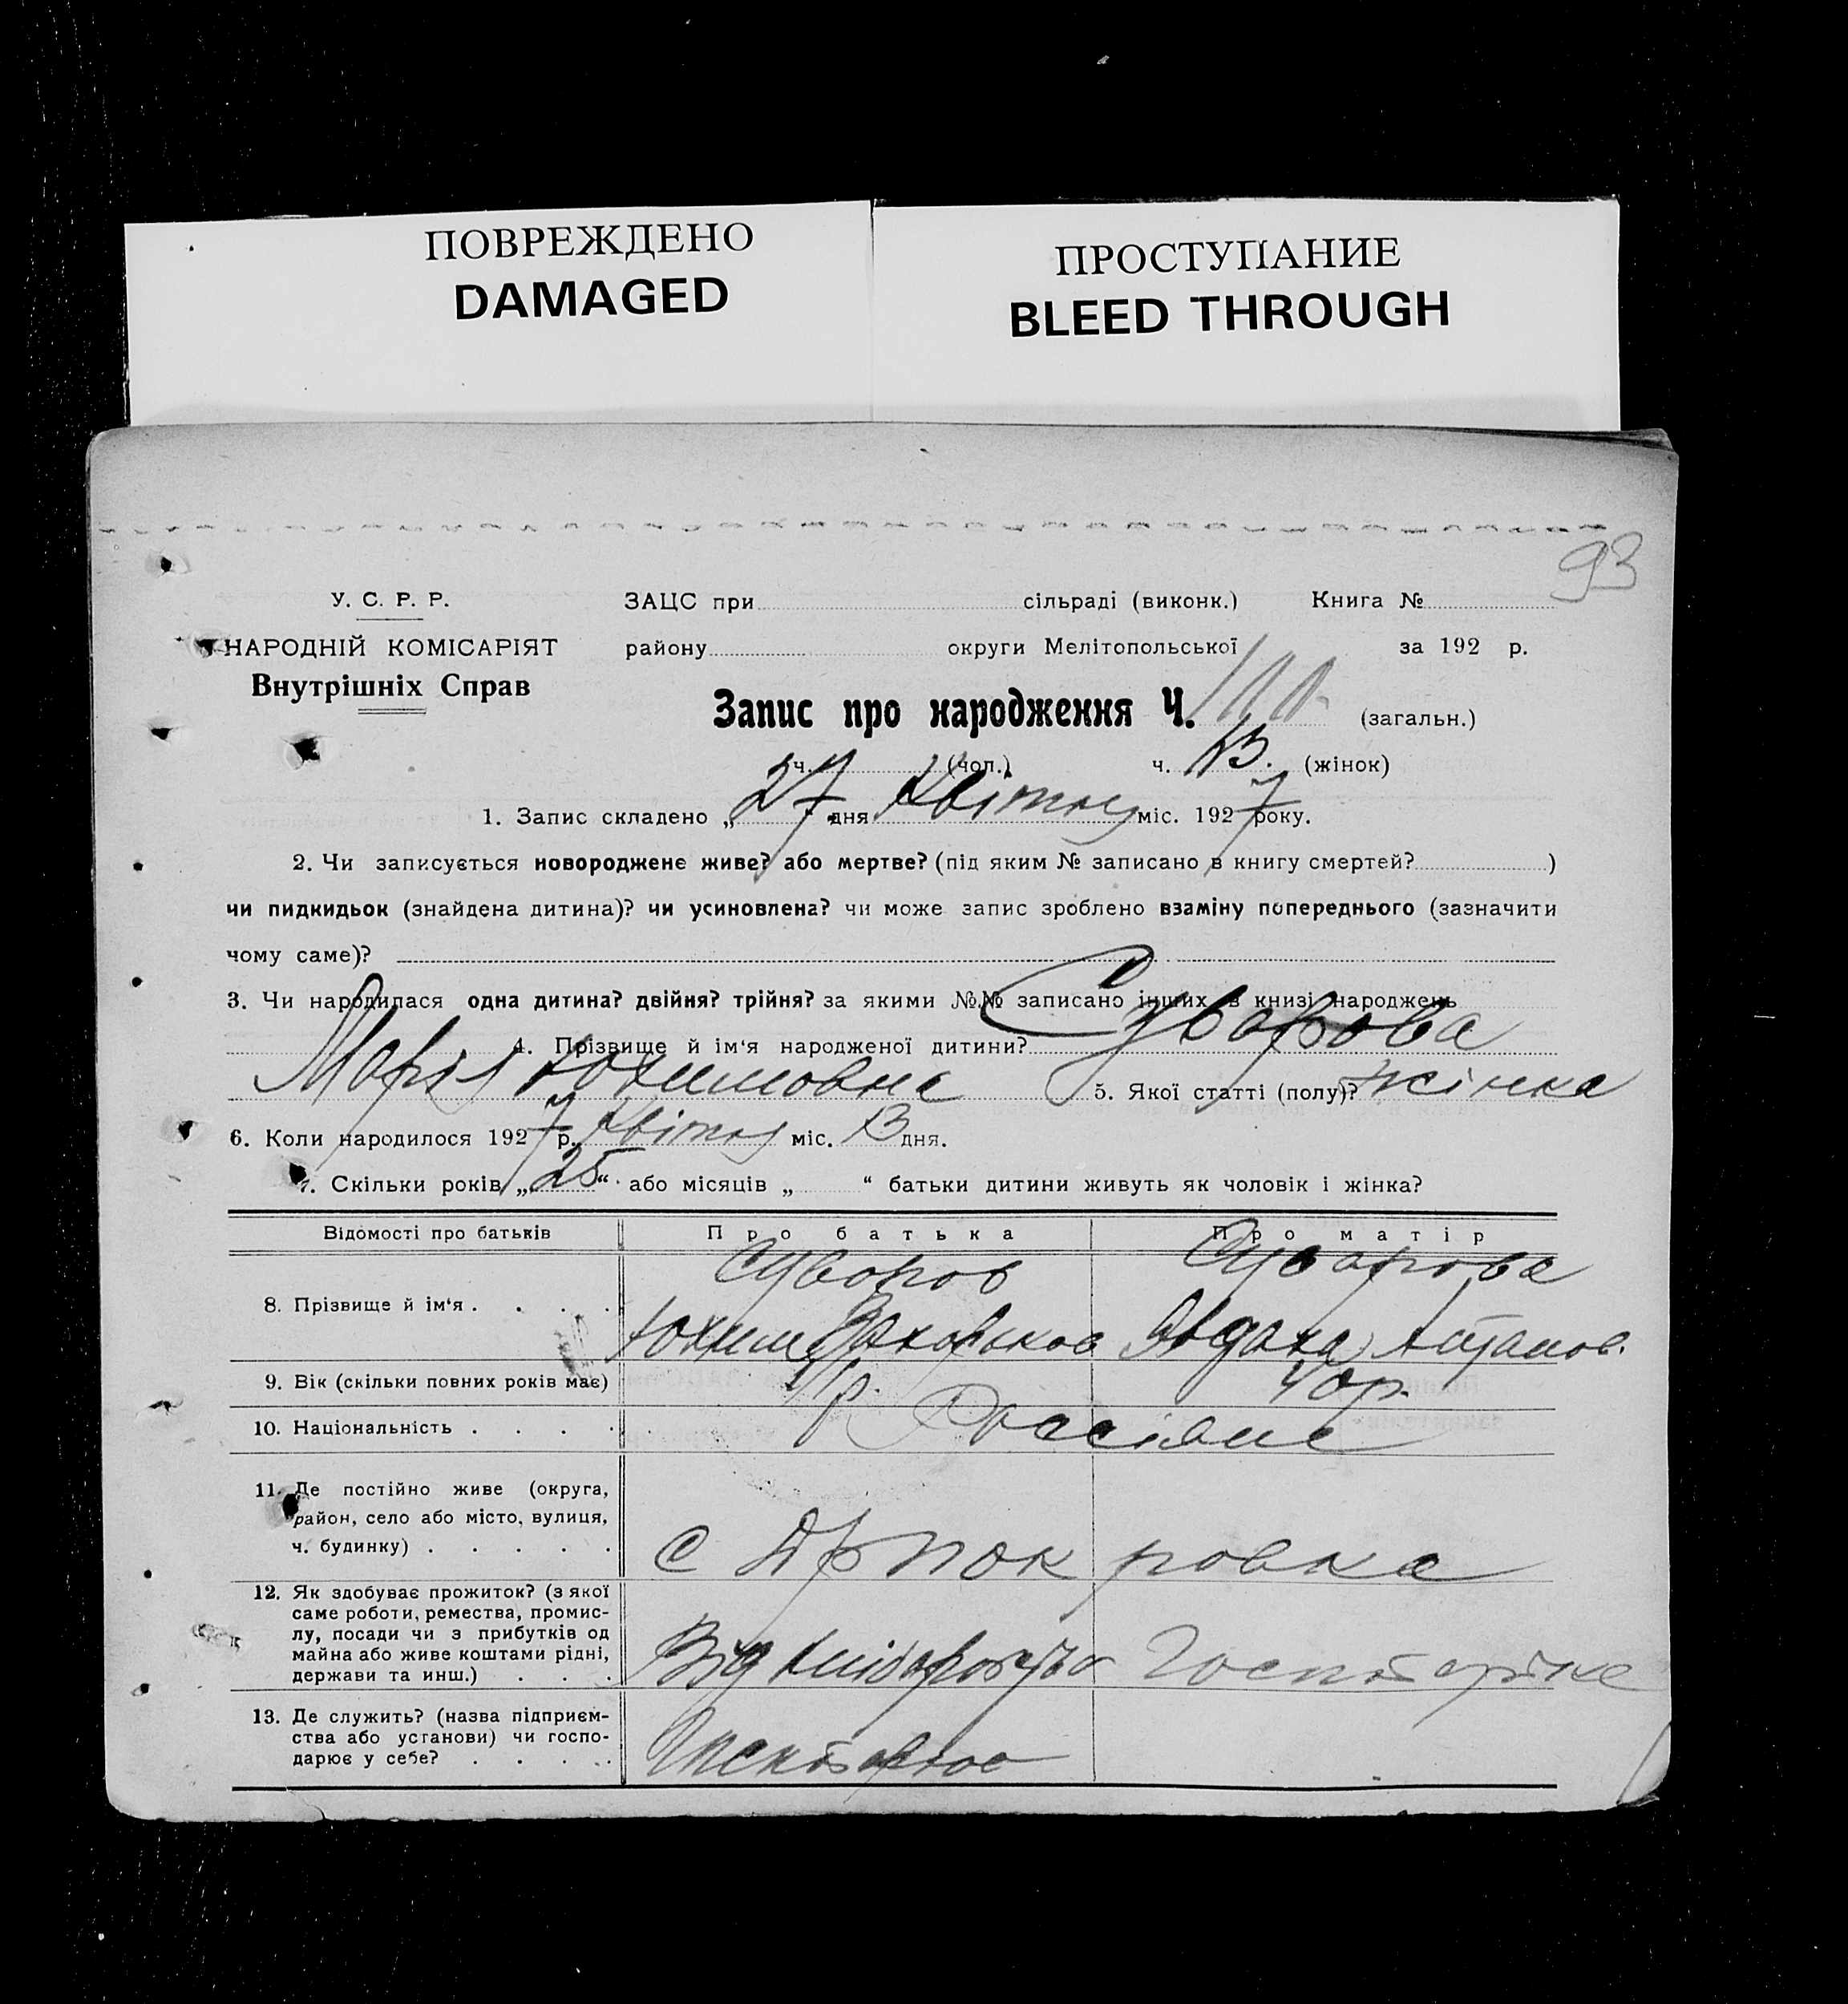 ПОВРЕЖДЕНО
DAMAGED
ПРОСТУПАНИЕ
BLEED THROUGH
93
У. С. Р. Р.
НАРОДНІЙ КОМІСАРІЯТ
Внутрішніх Справ
ЗАЦС при сільраді (виконк.) Книга №
району округи Мелітопольської за 192 р.
Запис про народження Ч. (загальн.)
ч. (чол.) ч. (жінок)
1. Запис складено „27“ дня Квітня міс. 1927 року.
2. Чи записується новороджене живе? або мертве? (під яким № записано в книгу смертей? )
чи пидкидьок (знайдена дитина)? чи усиновлена? чи може запис зроблено взаміну попереднього (зазначити
чому саме)?
3. Чи народилася одна дитина? двійня? трійня? за якими №№ записано інших в книзі народжень
4. Прізвище й ім‘я народженої дитини? Суворова
Марія Юхимовна 5. Якої статті (полу)? жінка
6. Коли народилося 1927 р. Квітня міс. 13 дня.
7. Скільки років „25“ або місяців „ “ батьки дитини живуть як чоловік і жінка?
Відомості про батьків Про батька Про матір
8. Прізвище й ім‘я . . . . Суворов Суворова
Юхим
9. Вік (скільки повних років має) р. 40 р.
10. Національність . . . . Россіяне
11. Де постійно живе (округа,
район, село або місто, вулиця,
ч. будинку) . . . . . с
12. Як здобуває прожиток? (з якої
саме роботи, ремества, промис-
лу, посади чи з прибутків од
майна або живе коштами рідні,
держави та инш.) . . . Від хліборобства
13. Де служить? (назва підприєм-
ства або установи) чи госпо-
дарює у себе? . . . .